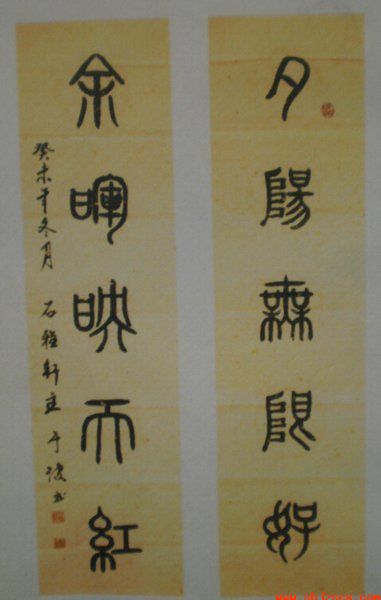 夕陽無限好
余暉映天紅
癸未年冬月 石雅軒主 于